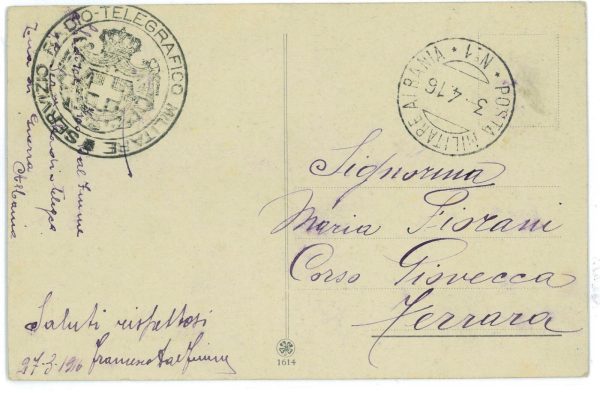 SERVIZIO RADIO-TELEGRAFICO MILITARE
POSTA MILITARE ALBANIA
N.1
3-4.16
Zona di Guerra
Albania
Signorina
Maria Fiorani
Corso Giovecca
Ferrara
Saluti rispettosi
27-3-1916 Francesco Dal Fiume
1614